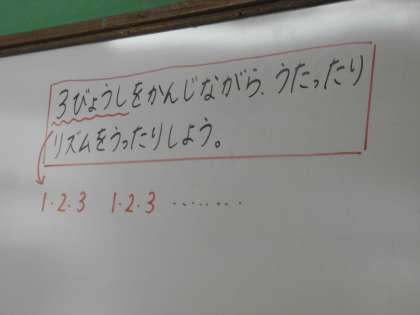 3びょうしをかんじながら、うたったり
リズムをうったりしよう。
1・2・3 1・2・3 ‥‥‥‥